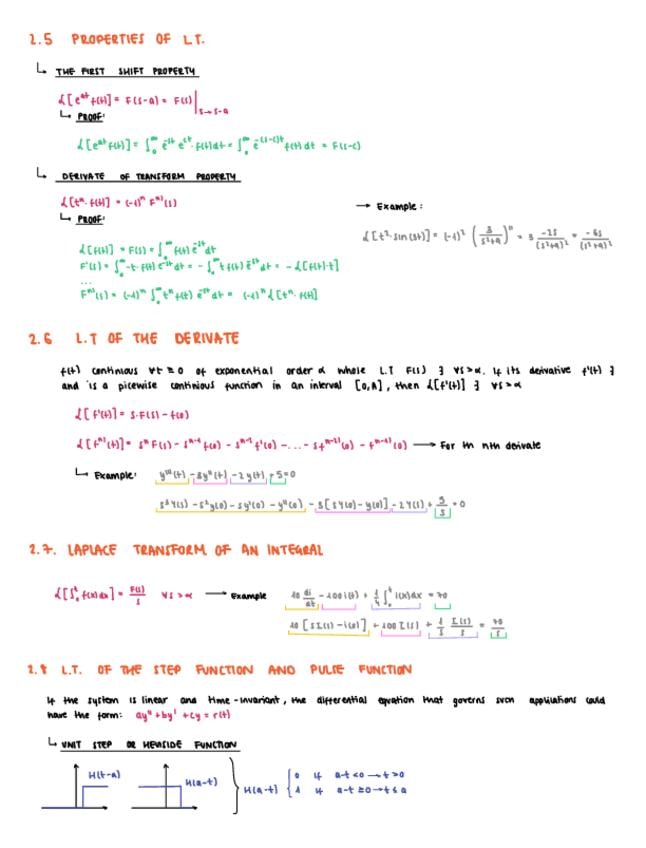 2.5 PROPERTIES OF L.T.
↳ THE FIRST SHIFT PROPERTY
ℒ[e^{at} f(t)] = F(s-a) = F(s)|_{s→s-a}
↳ PROOF:
ℒ[e^{at} f(t)] = ∫_0^∞ e^{-st} e^{ct} · f(t)dt = ∫_0^∞ e^{-(s-c)t} f(t) dt = F(s-c)
↳ DERIVATE OF TRANSFORM PROPERTY
ℒ[t^n · f(t)] = (-1)^n F^{n)}(s)
→ Example:
↳ PROOF:
ℒ[t^2 · sin(3t)] = (-1)^2 (3/(s^2+9))'' = 3 -2s/(s^2+9)^2 = -6s/(s^2+9)^2
ℒ[f(t)] = F(s) = ∫_0^∞ f(t) e^{-st} dt
F'(s) = ∫_0^∞ -t · f(t) e^{-st} dt = - ∫_0^∞ t f(t) e^{-st} dt = -ℒ[f(t)·t]
...
F^{n)}(s) = (-1)^n ∫_0^∞ t^n f(t) e^{-st} dt = (-1)^n ℒ[t^n · f(t)]
2.6 L.T OF THE DERIVATE
f(t) continious ∀t ≥ 0 of exponential order α whole L.T F(s) ∃ ∀s>α. If its derivative f'(t) ∃
and is a picewise continious function in an interval [0,A], then ℒ[f'(t)] ∃ ∀s>α
ℒ[f'(t)] = s·F(s) - f(0)
ℒ[f^{n)}(t)] = s^n F(s) - s^{n-1} f(0) - s^{n-2} f'(0) - ... - s f^{n-2)}(0) - f^{n-1)}(0) → For th nth derivate
↳ Example: y'''(t) - 3y''(t) - 2y(t) + 5 = 0
s^3 Y(s) - s^2 y(0) - sy'(0) - y''(0) - 3[sY(0) - y(0)] - 2Y(s) + 5/s = 0
2.7. LAPLACE TRANSFORM OF AN INTEGRAL
ℒ[∫_0^t f(x)dx] = F(s)/s ∀s>α → Example 10 di/dt - 100 i(t) + 1/4 ∫_0^t i(x)dx = 70
10 [sI(s) - i(0)] + 100 I(s) + 1/s I(s)/s = 70/s
2.8 L.T. OF THE STEP FUNCTION AND PULSE FUNCTION
If the system is linear and time-invariant, the differential equation that governs such appliations could
have the form: ay'' + by' + cy = r(t)
↳ UNIT STEP OR HEVISIDE FUNCTION
H(t-a) H(a-t) H(a-t) { 0 if a-t <0 → t>0
1 if a-t ≥0 → t≤a